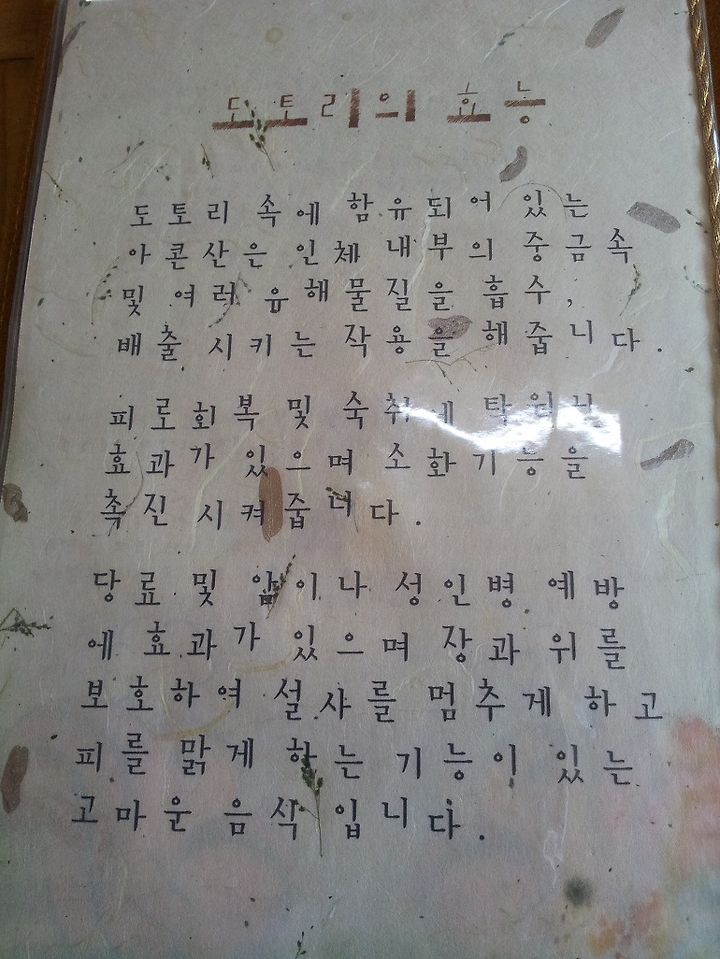 도토리의 효능
도토리 속에 함유되어 있는
아콘산은 인체 내부의 중금속
및 여러 유해물질을 흡수,
배출 시키는 작용을 해줍니다.
피로회복 및 숙취에 탁월한
효과가 있으며 소화기능을
촉진 시켜줍니다.
당료 및 암이나 성인병 예방
에 효과가 있으며 장과 위를
보호하여 설사를 멈추게 하고
피를 맑게 하는 기능이 있는
고마운 음식 입니다.